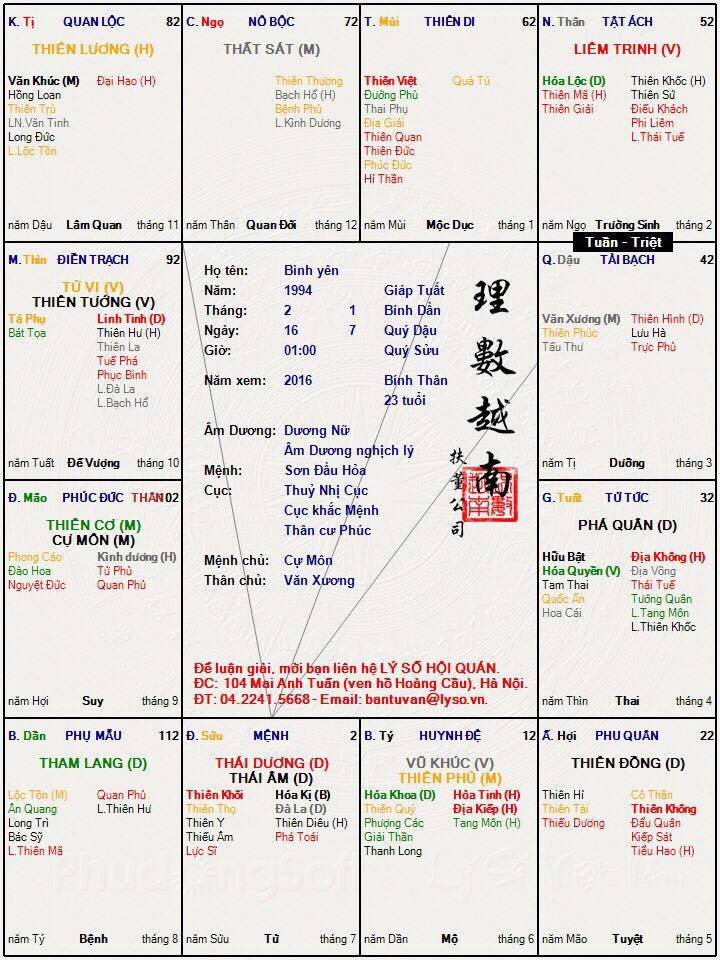 K. Tị QUAN LỘC 82
THIÊN LƯƠNG (H)
Văn Khúc (M) Đại Hao (H)
Hồng Loan
Thiên Trù
LN.Văn Tinh
Long Đức
L.Lộc Tồn
năm Dậu Lâm Quan tháng 11
C. Ngọ NÔ BỘC 72
THẤT SÁT (M)
Thiên Thương
Bạch Hổ (H)
Bệnh Phù
L.Kình Dương
năm Thân Quan Đới tháng 12
T. Mùi THIÊN DI 62
Thiên Việt Quả Tú
Đường Phù
Thai Phụ
Địa Giải
Thiên Quan
Thiên Đức
Phúc Đức
Hỉ Thần
năm Mùi Mộc Dục tháng 1
N. Thân TẬT ÁCH 52
LIÊM TRINH (V)
Hóa Lộc (D) Thiên Khốc (H)
Thiên Mã (H) Thiên Sứ
Thiên Giải Điếu Khách
Phi Liêm
L.Thái Tuế
năm Ngọ Trường Sinh tháng 2
Tuần - Triệt
M. Thìn ĐIỀN TRẠCH 92
TỬ VI (V)
THIÊN TƯỚNG (V)
Tả Phụ Linh Tinh (D)
Bát Tọa Thiên Hư (H)
Thiên La
Tuế Phá
Phục Binh
L.Đà La
L.Bạch Hổ
năm Tuất Đế Vượng tháng 10
Họ tên: Bình yên
Năm: 1994 Giáp Tuất
Tháng: 2 1 Bính Dần
Ngày: 16 7 Quý Dậu
Giờ: 01:00 Quý Sửu
Năm xem: 2016 Bính Thân
23 tuổi
Âm Dương: Dương Nữ
Âm Dương nghịch lý
Mệnh: Sơn Đầu Hỏa
Cục: Thuỷ Nhị Cục
Cục khắc Mệnh
Thân cư Phúc
Mệnh chủ: Cự Môn
Thân chủ: Văn Xương
理數越南
扶董公司
Để luận giải, mời bạn liên hệ LÝ SỐ HỘI QUÁN.
ĐC: 104 Mai Anh Tuấn (ven hồ Hoàng Cầu), Hà Nội.
ĐT: 04.2241.5668 - Email: bantuvan@lyso.vn.
Q. Dậu TÀI BẠCH 42
Văn Xương (M) Thiên Hình (D)
Thiên Phúc Lưu Hà
Tấu Thư Trực Phù
năm Tị Dưỡng tháng 3
Đ. Mão PHÚC ĐỨC THÂN 102
THIÊN CƠ (M)
CỰ MÔN (M)
Phong Cáo Kình dương (H)
Đào Hoa Tử Phù
Nguyệt Đức Quan Phủ
năm Hợi Suy tháng 9
G. Tuất TỬ TỨC 32
PHÁ QUÂN (D)
Hữu Bật Địa Không (H)
Hóa Quyền (V) Địa Võng
Tam Thai Thái Tuế
Quốc Ấn Tướng Quân
Hoa Cái L.Tang Môn
L.Thiên Khốc
năm Thìn Thai tháng 4
B. Dần PHỤ MẪU 112
THAM LANG (D)
Lộc Tồn (M) Quan Phù
Ân Quang L.Thiên Hư
Long Trì
Bác Sỹ
L.Thiên Mã
năm Tý Bệnh tháng 8
Đ. Sửu MỆNH 2
THÁI DƯƠNG (D)
THÁI ÂM (D)
Thiên Khôi Hóa Kị (B)
Thiên Thọ Đà La (D)
Thiên Y Thiên Diêu (H)
Thiếu Âm Phá Toái
Lực Sĩ
năm Sửu Tử tháng 7
B. Tý HUYNH ĐỆ 12
VŨ KHÚC (V)
THIÊN PHỦ (M)
Hóa Khoa (D) Hỏa Tinh (H)
Thiên Quý Địa Kiếp (H)
Phượng Các Tang Môn (H)
Giải Thần
Thanh Long
năm Dần Mộ tháng 6
Ấ. Hợi PHU QUÂN 22
THIÊN ĐỒNG (D)
Thiên Hỉ Cô Thần
Thiên Tài Thiên Không
Thiếu Dương Đẩu Quân
Kiếp Sát
Tiểu Hao (H)
năm Mão Tuyệt tháng 5